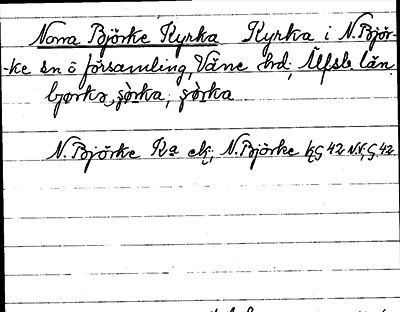 Norra Björke Kyrka Kyrka i N. Björ-
-ke sn o församling, Väne hd; Älfsb. län
bjørka, ʂörka, ʂörka
N. Björke Ka ek; N. Björke kG 42 NV, G. 42.